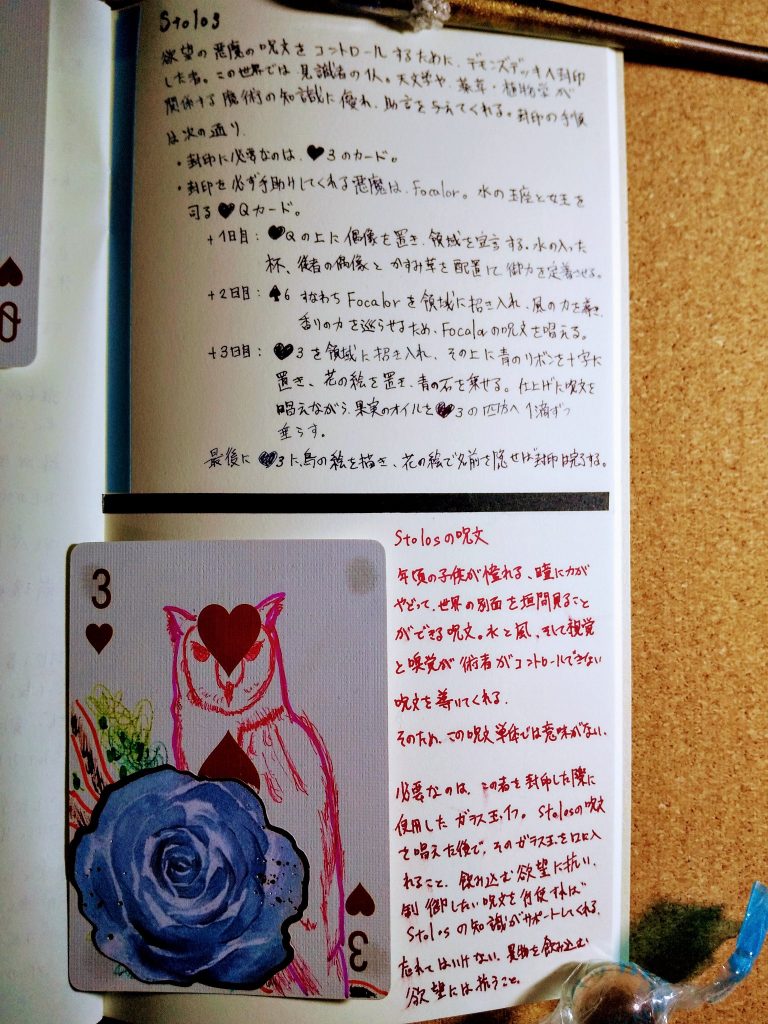 Stolos
欲望の悪魔の呪文をコントロールするために、デモンズデッキへ封印
した者。この世界では見識者の仏。天文学や、薬草・植物学が
関係する魔術の知識に優れ、助言を与えてくれる。封印の手順
は次の通り、
・封印に必要なのは、♥3のカード。
・封印を必ず手助けしてくれる悪魔は、Focalor。水の王座と女王を
司る♥Qカード。
+1日目:♥Qの上に偶像を置き、領域を宣言する。水の入った
杯、術者の偶像とかすみ草を配置して、御力を定着させる。
+2日目:♠6 すなわちFocalorを領域に招き入れ、風の力を
香りの力を巡らせるため、Focalorの呪文を唱える。
+3日目:♥3を領域に招き入れ、その上に青のリボンを十字に
置き、花の絵を置き、青の石を乗せる。仕上げに呪文を
唱えながら、果実のオイルを♥3の四方へ1滴ずつ
垂らす。
最後に♥3に、鳥の絵を描き、花の絵で名前を隠せば封印は完了する。
Stolosの呪文
年頃の子供が憧れる、瞳に力が
やどって、世界の別面を垣間見ること
ができる呪文。水と風、そして視覚
と嗅覚が術者がコントロールできない
呪文を導いてくれる。
そのため、この呪文単体では意味がない。
必要なのは、この者を封印した際に
使用したガラス玉1つ。Stolosの呪文
を唱えた後で、そのガラス玉を口に入
れること。飲み込む欲望に抗い、
制御したい呪文を行使すれば
Stolosの知識がサポートしてくれる。
忘れてはいけない。異物を飲み込む
欲望には抗うこと。
3
3
Q